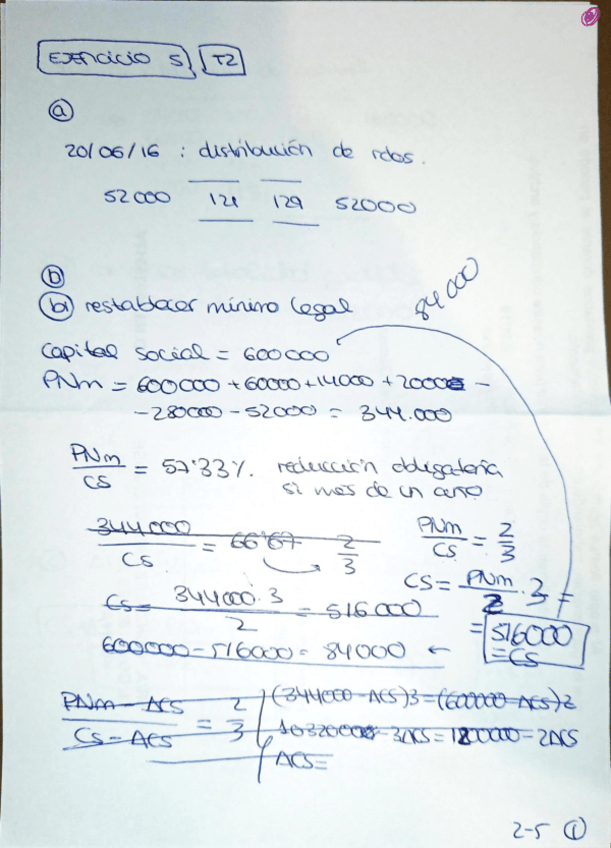 EJERCICIO 5 T2
a
20/06/16 : distribución de rdos.
52000 121 129 52000
b
b1 restablecer mínimo legal
84000
Capital social = 600000
PNm = 600000 + 60000 + 14000 + 2000 -
- 280000 - 52000 = 344.000
PNm/CS = 57'33%. reducción obligatoria
si más de un año
344000/CS = 66'67 2/3
PNm/CS = 2/3
CS = PNm/2 · 3 =
CS = 344000·3/2 = 516000
= 516000
= CS
600000 - 516000 = 84000 ←
PNm - ΔCS / CS - ΔCS = 2/3
(344000 - ΔCS)3 = (600000 - ΔCS)2
1032000 - 3ΔCS = 1200000 - 2ΔCS
ΔCS =
2-5 1